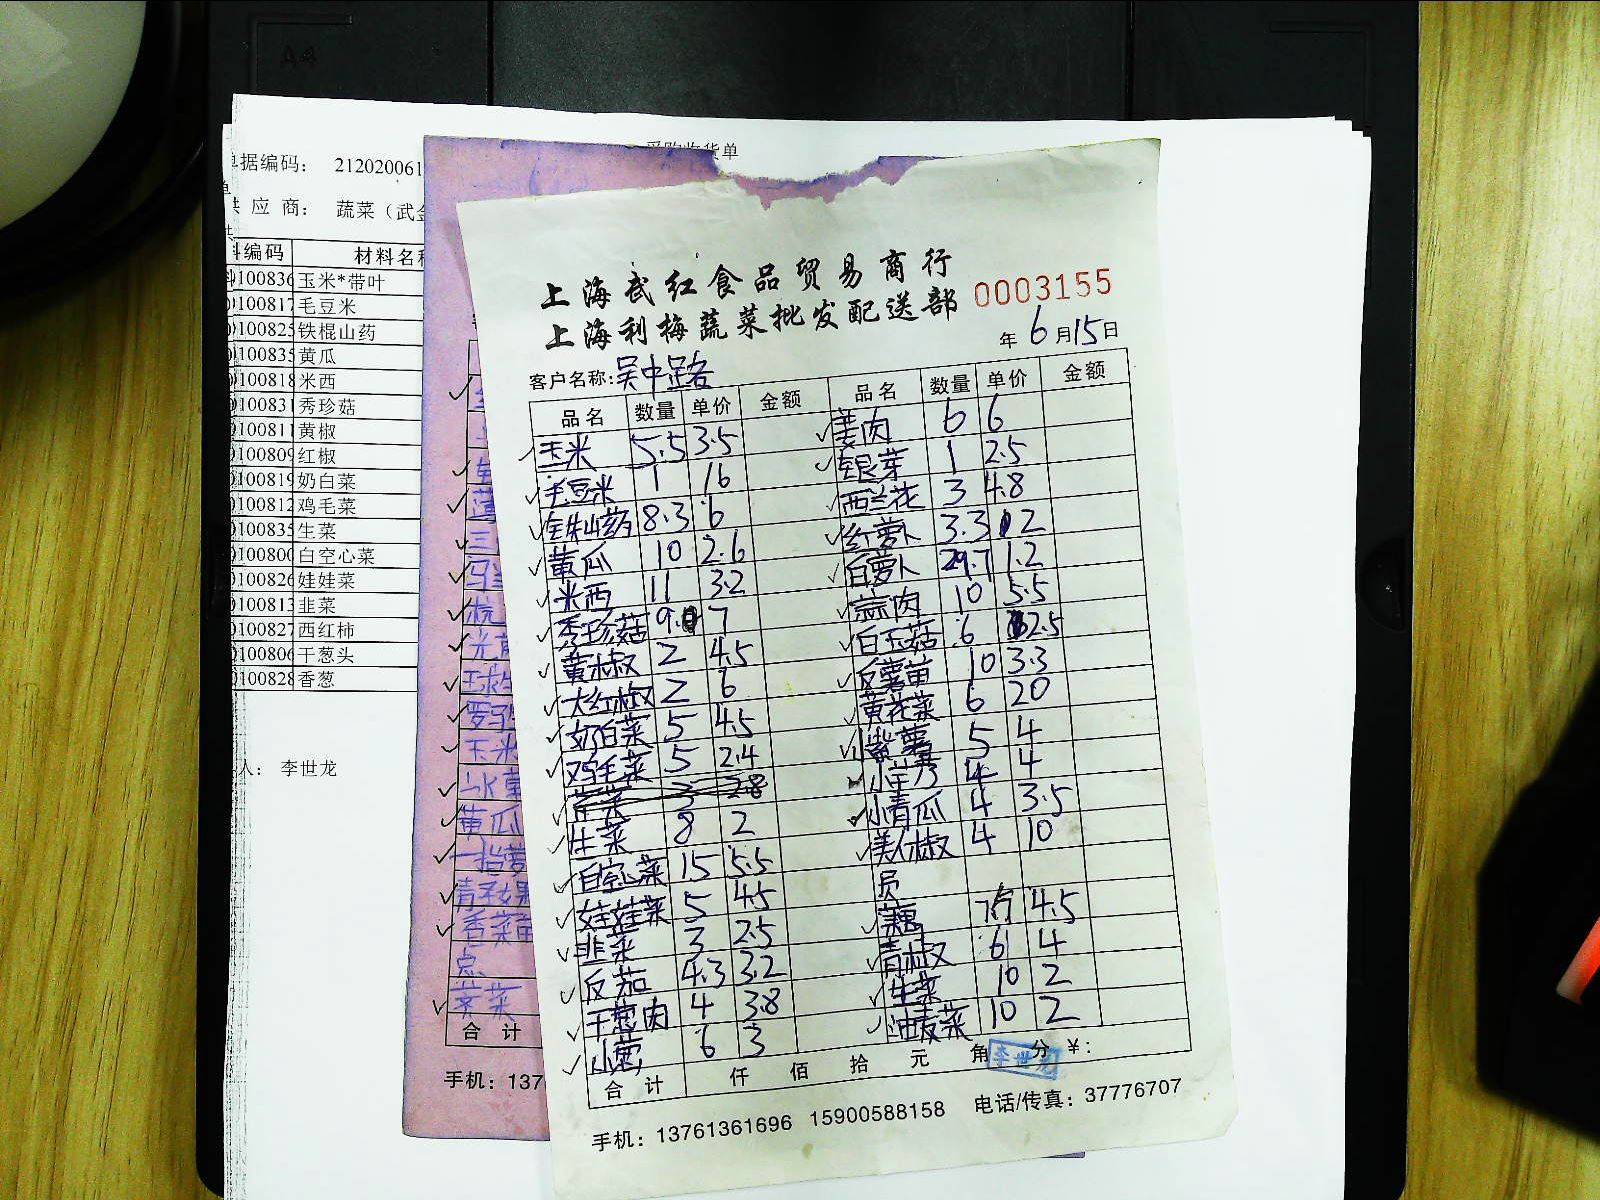 采购收货单
单据编码： 212020061
供 应 商： 蔬菜（武金
料编码 材料名称
0100836 玉米*带叶
0100817 毛豆米
0100825 铁棍山药
0100835 黄瓜
0100818 米西
0100831 秀珍菇
0100811 黄椒
0100809 红椒
0100819 奶白菜
0100812 鸡毛菜
0100835 生菜
0100800 白空心菜
0100826 娃娃菜
0100813 韭菜
0100827 西红柿
0100806 干葱头
0100828 香葱
人： 李世龙
三
玉米
黄瓜
香菜苗
点
荠菜
合 计
手机：137
上海武红食品贸易商行
上海利梅蔬菜批发配送部 0003155
年 6 月 15 日
客户名称：吴中路
品名 数量 单价 金额 品名 数量 单价 金额
玉米 5.5 3.5 姜肉 6 6
毛豆米 1 16 银芽 1 2.5
铁山药 8.3 6 西兰花 3 4.8
黄瓜 10 2.6 红萝卜 3.3 2
米西 11 3.2 白萝卜 29.7 1.2
秀珍菇 9. 7 蒜肉 10 5.5
黄椒 2 4.5 白玉菇 6 2.5
大红椒 2 6 反薯苗 10 3.3
奶白菜 5 4.5 黄花菜 6 20
鸡毛菜 5 2.4 紫薯 5 4
芹菜 3 2.8 小芋艿 4 4
生菜 8 2 小青瓜 4 3.5
白空心菜 15 5.5 美人椒 4 10
娃娃菜 5 4.5 员
韭菜 3 2.5 藕 4.5
反茄 4.3 3.2 青椒 6 4
干葱肉 4 3.8 生菜 10 2
小葱 6 3 油麦菜 10 2
合 计 仟 佰 拾 元 角 分 ¥：
李世龙
手机：13761361696 15900588158 电话/传真：37776707